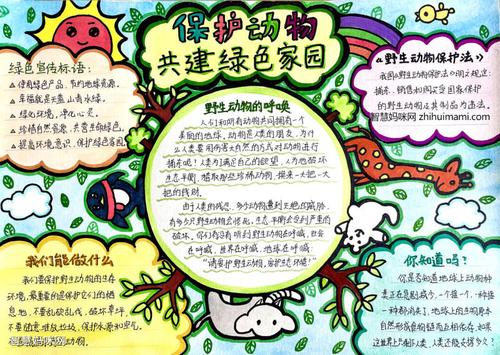 保护动物
共建绿色家园
绿色宣传标语:
使用绿色产品,节约地球资源.
幸福就是天蓝山青水绿.
绿化环境,净化心灵.
珍稀自然资源,共营生命绿色.
提高环境意识,保护绿色家园.
《野生动物保护法》
我国《野生动物保护法》明文规定:
捕杀、销售和购买受国家保护
的野生动物及其制品为违法.
智慧妈咪网 zhihuimami.com
野生动物的呼唤
人们和所有动物共同拥有一个
美丽的地球,动物是人类的朋友,为什
么人类要用伤害大自然的方式对动物进行
捕杀呢?人类为满足自己的欲望,人为地破坏
生态平衡,猎取那些珍稀动物,换来一大把一大
把的钱财.
由于人类的残忍,多少动物遭到灭绝的威胁,
有多少只野生动物会惨死,生态平衡会受到严重的
破坏.你们有没有听到野生动物在呼喊,社会
在呼喊,世界在呼喊,地球在呼喊:
"请爱护野生动物,爱护生态环境!"
我们能做什么
我们要保护野生动物的生存
环境,最重要的是保护它们的栖
息地,不要乱砍乱伐,破坏草坪,
不要随意堆放垃圾,保护水源和空气,
动物.
智慧妈咪网
你知道吗?
你是否知道地球上动物种
类正在急剧减少,一个接一个,一种接
一种都消失了.地球上的生物原本
自然形成食物链而互相依存,如果